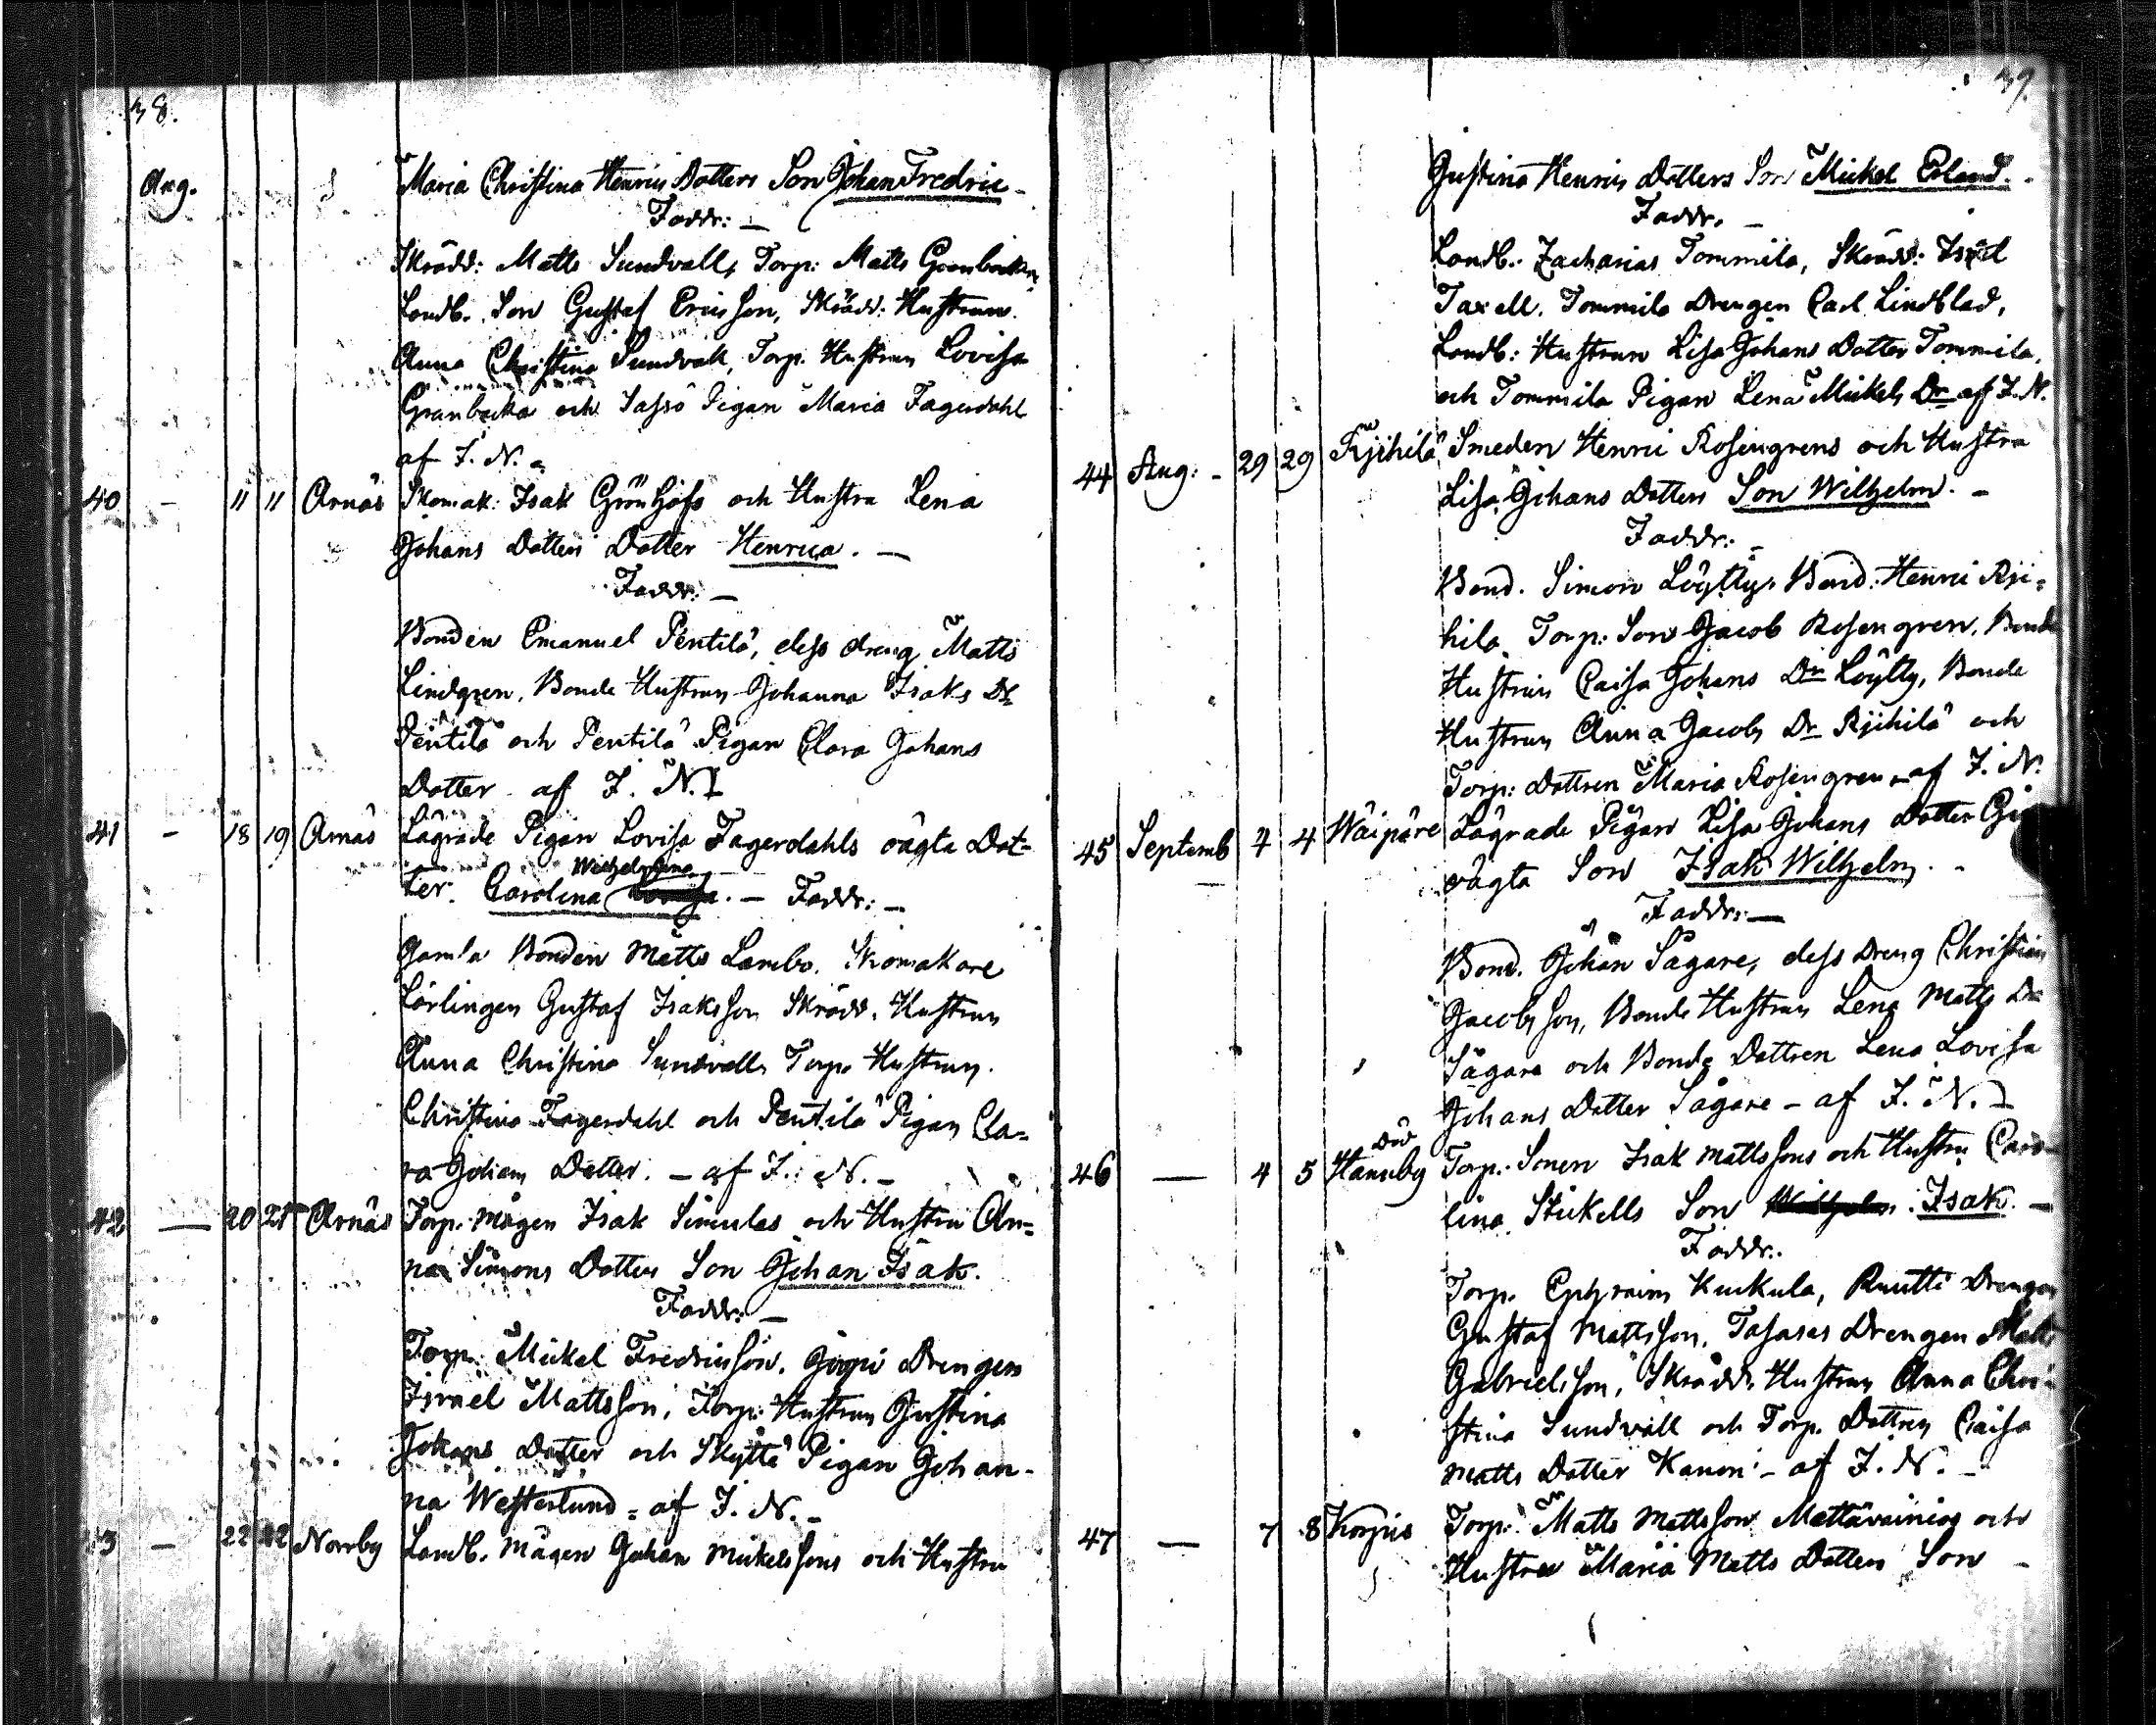 38.
Aug. Maria Christina Henrics Dotters Son Johan Fredric -
Faddr: -
Skrädd: Matts Sundvall, Torp: Matts Granbacka,
Landb. Son Gustaf Ericsson, Skrädd: Hustrun
Anna Christina Sundvall, Torp. Hustrun Lovisa
Granbacka och Sassö Pigan Maria Fagerdahl
af F. N. -
40 - 11 11 Arnäs Skomak: Isak Grönhofs och Hustru Lena
Johans Dotters Dotter Henrica. -
Faddr: -
Bonden Emanuel Pentilä, dess dreng Matts
Lindgren, Bonde Hustrun Johanna Isaks Dr
Pentilä och Pentilä Pigan Clara Johans
Dotter af F. N. -
41 - 18 19 Arnäs Lägrade Pigan Lovisa Fagerdahls oägta Dot-
Wilhelmina
ter. Carolina . - Faddr: -
Gamla Bonden Matts Lambo, Skomakare
Lärlingen Gustaf Isaksson Skrädd. Hustrun
Anna Christina Sundvall, Torp. Hustrun
Christina Fagerdahl och Pentilä Pigan Cla-
ra Johans Dotter. - af F. N. -
42 - 20 21 Arnäs Torp. mågen Isak Simulas och Hustru An-
na Simons Dotters Son Johan Isak.
Faddr: -
Torp. Mickel Fredricsson, Drengen
Israel Mattsson, Torp: Hustrun Gustina
Johans Dotter och Skyttä Pigan Johan-
na Westerlund - af F. N. -
43 - 22 22 Norrby Landb. mågen Johan Mickelssons och Hustru
39.
Gustina Henrics Dotters Son Mickel Erland. -
Faddr. -
Landb. Zacharias Tommila, Skrädd:
Taxell, Tommila Drengen Carl Lindblad,
Landb: Hustrun Lisa Johans Dotter Tommila,
och Tommila Pigan Lena Mickels Dr af F. N.
44 Aug: - 29 29 Rjihilä Smeden Henric Rosengrens och Hustru
Lisa Johans Dotters Son Wilhelm. -
Faddr: -
Bond. Simon Löytty, Bond: Henric Rji-
hilä, Torp: Son Jacob Rosengren, Bonde
Hustrun Caisa Johans Dr Löytty, Bonde
Hustrun Anna Jacobs Dr Rjihilä och
Torp: Dottren Maria Rosengren - af F. N.
45 Septemb 4 4 Waipäre Lägrade Pigan Lisa Johans Dotter
oägta Son Isak Wilhelm. -
Faddr: -
Bond. Johan Sågare, dess Dreng Christian
Jacobsson, Bonde Hustrun Lena Matts Dr
Sågare och Bonde Dottren Lena Lovisa
Johans Dotter Sågare - af F. N. -
död
46 - 4 5 Hannuby Torp. Sonen Isak Mattssons och Hustru Caro-
lina Stickells Son Wilhelm. Isak. -
Faddr.
Torp. Ephraim Kuckula, Ruutti Drengen
Gustaf Mattsson, Tasases Drengen Matts
Gabrielsson, Skrädd. Hustrun Anna Chri-
stina Sundvall och Torp. Dottren Caisa
Matts Dotter Kanon - af F. N. -
47 - 7 8 Korpis Torp: Matts Mattsson Mattäväiniös och
Hustru Maria Matts Dotters Son -